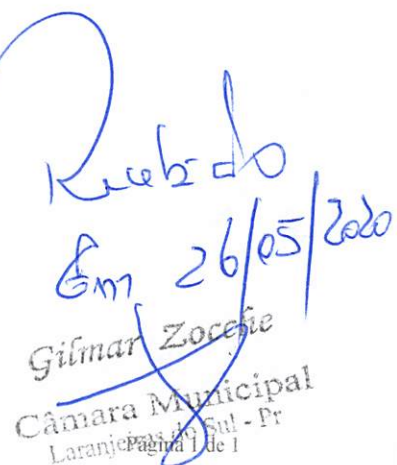 Recebido
Em 26/05/2020
Gilmar Zocche
Câmara Municipal
Laranjeiras do Sul - Pr
Página 1 de 1